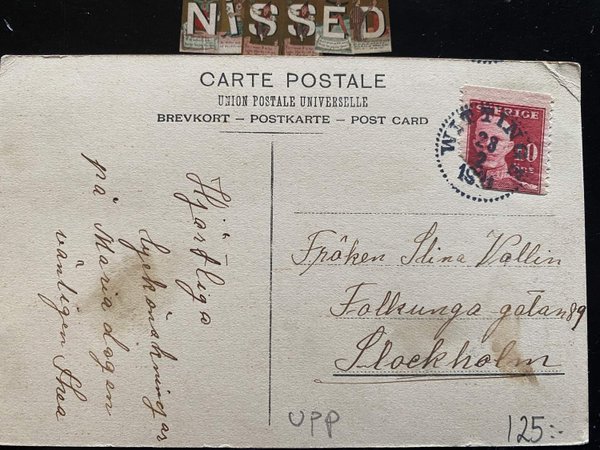 NISSED
CARTE POSTALE
UNION POSTALE UNIVERSELLE
BREVKORT – POSTKARTE – POST CARD
SVERIGE
10
WITTINGE
23
2
Hjärtliga
lyckönskningar
på Maria dagen
vänligen Thea
Fröken Stina Vallin
Folkunga gatan 89
Stockholm
UPP
125:-